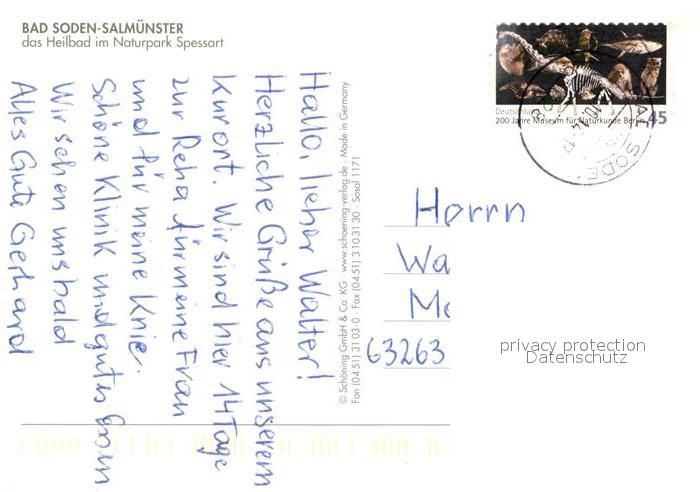 BAD SODEN-SALMÜNSTER
das Heilbad im Naturpark Spessart
Hallo, lieber Walter!
Herzliche Grüße aus unserem
Kurort. Wir sind hier 14 Tage
zur Reha für meine Frau
und für meine Knie.
Schöne Klinik und gutes Essen
Wir sehen uns bald
Alles Gute Gerhard
© Schöning GmbH & Co. KG · www.schoening-verlag.de · Made in Germany
Fon (04 51) 31 03-0 · Fax (04 51) 3 10 31 30 · Sosal 1171
Deutschland
200 Jahre Museum für Naturkunde Berlin 45
BAD SODEN
Herrn
Wa
63263
privacy protection
Datenschutz